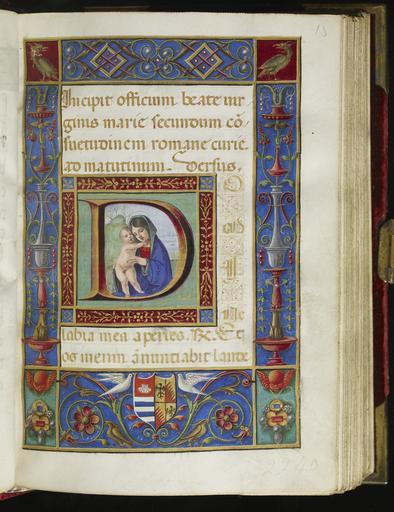 Incipit officium beate vir
ginis marie secundum cō
suetudinem romane curie.
ad matutinum. Versus.
D
O
labia mea aperies. R. Et
os meum ānuntiabit laude
13